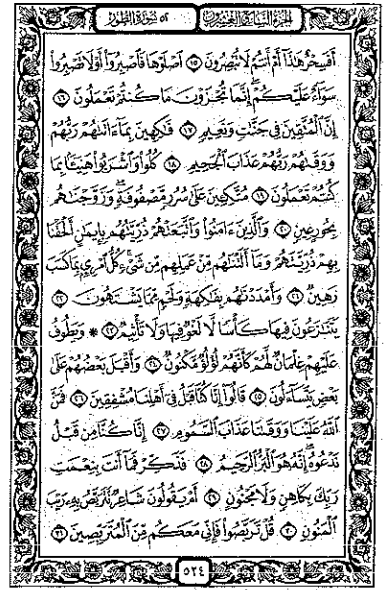 الجزء السابع والعشرون ٥٢ سورة الطور
أَفَسِحْرٌ هَٰذَا أَمْ أَنتُمْ لَا تُبْصِرُونَ ١٥ ٱصْلَوْهَا فَٱصْبِرُوٓا۟ أَوْ لَا تَصْبِرُوا۟
سَوَآءٌ عَلَيْكُمْ ۖ إِنَّمَا تُجْزَوْنَ مَا كُنتُمْ تَعْمَلُونَ ١٦
إِنَّ ٱلْمُتَّقِينَ فِى جَنَّٰتٍ وَنَعِيمٍ ١٧ فَٰكِهِينَ بِمَآ ءَاتَىٰهُمْ رَبُّهُمْ
وَوَقَىٰهُمْ رَبُّهُمْ عَذَابَ ٱلْجَحِيمِ ١٨ كُلُوا۟ وَٱشْرَبُوا۟ هَنِيٓـًٔۢا بِمَا
كُنتُمْ تَعْمَلُونَ ١٩ مُتَّكِـِٔينَ عَلَىٰ سُرُرٍ مَّصْفُوفَةٍ ۖ وَزَوَّجْنَٰهُم
بِحُورٍ عِينٍ ٢٠ وَٱلَّذِينَ ءَامَنُوا۟ وَٱتَّبَعَتْهُمْ ذُرِّيَّتُهُم بِإِيمَٰنٍ أَلْحَقْنَا
بِهِمْ ذُرِّيَّتَهُمْ وَمَآ أَلَتْنَٰهُم مِّنْ عَمَلِهِم مِّن شَىْءٍ ۚ كُلُّ ٱمْرِئٍۭ بِمَا كَسَبَ
رَهِينٌ ٢١ وَأَمْدَدْنَٰهُم بِفَٰكِهَةٍ وَلَحْمٍ مِّمَّا يَشْتَهُونَ ٢٢
يَتَنَٰزَعُونَ فِيهَا كَأْسًا لَّا لَغْوٌ فِيهَا وَلَا تَأْثِيمٌ ٢٣ * وَيَطُوفُ
عَلَيْهِمْ غِلْمَانٌ لَّهُمْ كَأَنَّهُمْ لُؤْلُؤٌ مَّكْنُونٌ ٢٤ وَأَقْبَلَ بَعْضُهُمْ عَلَىٰ
بَعْضٍ يَتَسَآءَلُونَ ٢٥ قَالُوٓا۟ إِنَّا كُنَّا قَبْلُ فِىٓ أَهْلِنَا مُشْفِقِينَ ٢٦ فَمَنَّ
ٱللَّهُ عَلَيْنَا وَوَقَىٰنَا عَذَابَ ٱلسَّمُومِ ٢٧ إِنَّا كُنَّا مِن قَبْلُ
نَدْعُوهُ ۖ إِنَّهُۥ هُوَ ٱلْبَرُّ ٱلرَّحِيمُ ٢٨ فَذَكِّرْ فَمَآ أَنتَ بِنِعْمَتِ
رَبِّكَ بِكَاهِنٍ وَلَا مَجْنُونٍ ٢٩ أَمْ يَقُولُونَ شَاعِرٌ نَّتَرَبَّصُ بِهِۦ رَيْبَ
ٱلْمَنُونِ ٣٠ قُلْ تَرَبَّصُوا۟ فَإِنِّى مَعَكُم مِّنَ ٱلْمُتَرَبِّصِينَ ٣١
٥٢٤